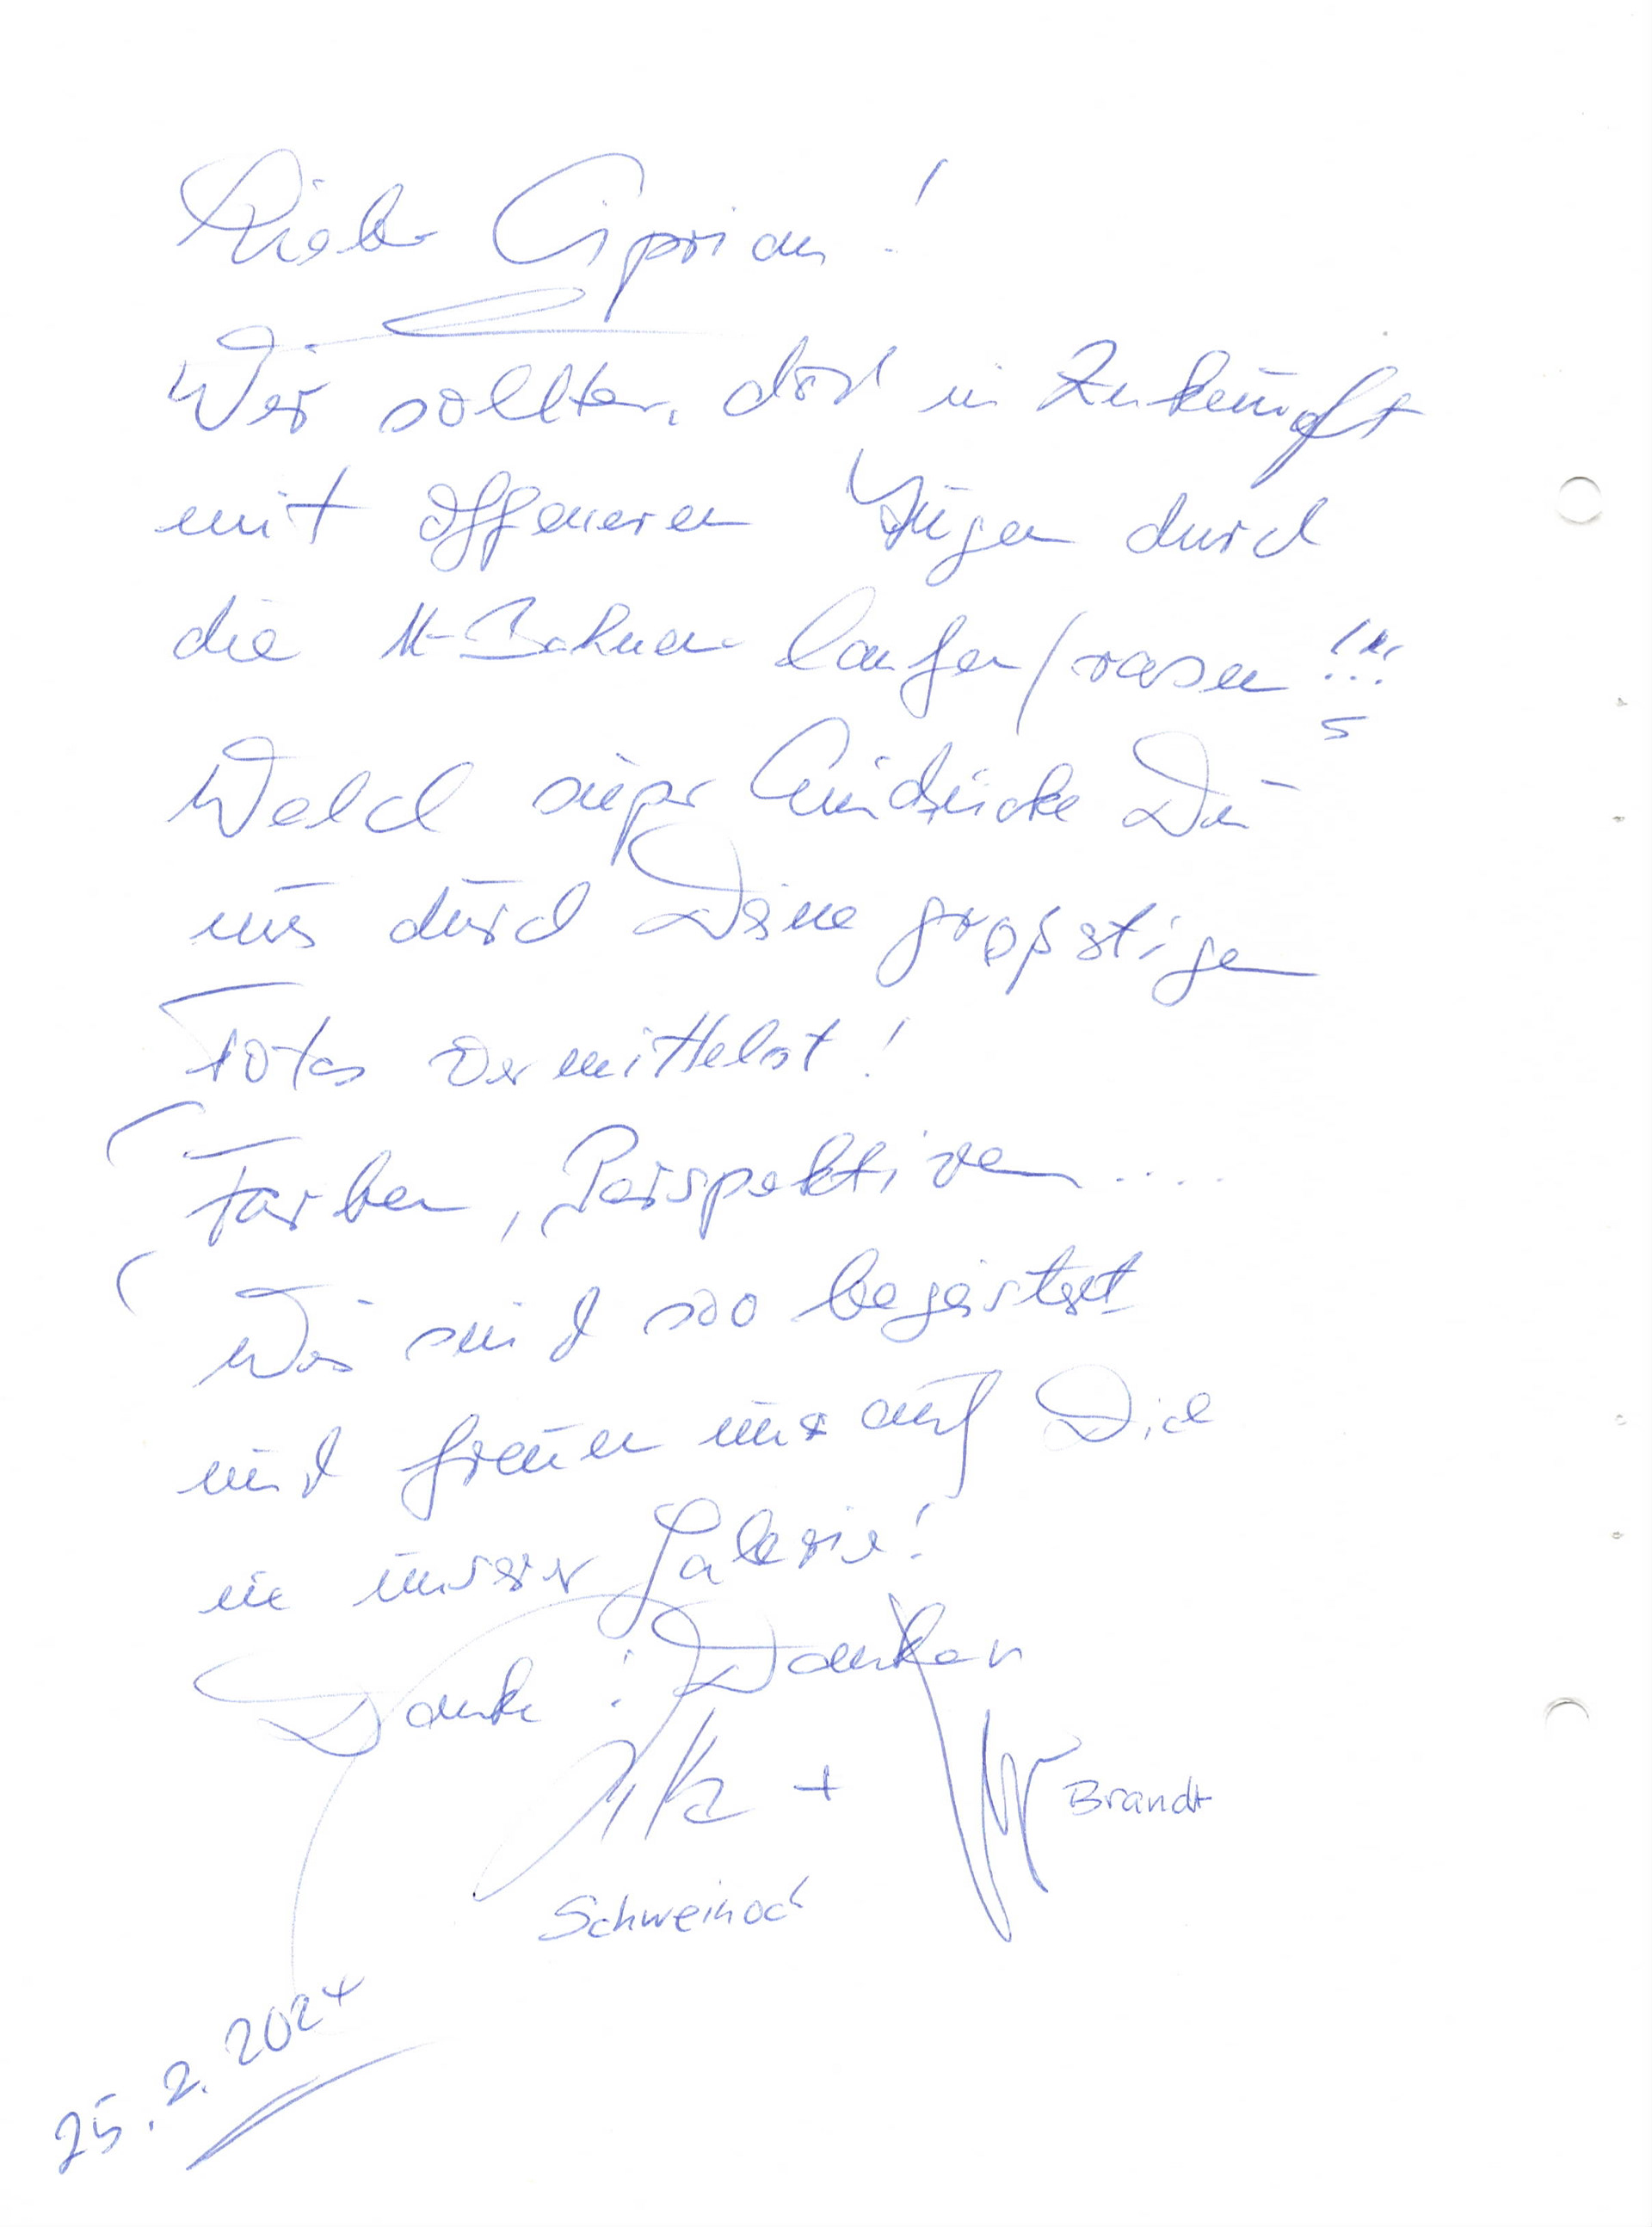 Lieber Ciprian!
Wir sollten doch in Zukunft
mit offeneren Augen durch
die U-Bahnen laufen/rasen!!!
Welch super Eindrücke Du
uns durch Deine großartigen
Fotos vermittelst!
Farben, Perspektiven....
Wir sind soo begeistert
und freuen uns auf Dich
in unserer Galerie!
Danke! Danke
+
Brandt
Schweinoch
25.2.2024